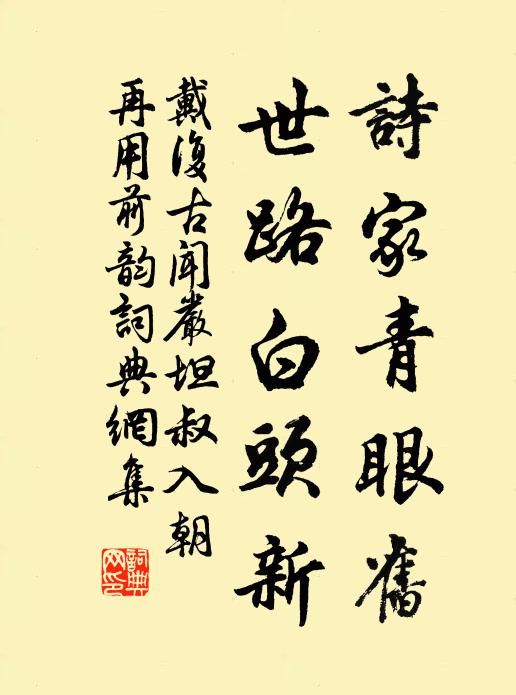 詩家青眼舊
世路白頭新
戴復古聞嚴坦叔入朝
再用前韵詞典網集
詞典网印